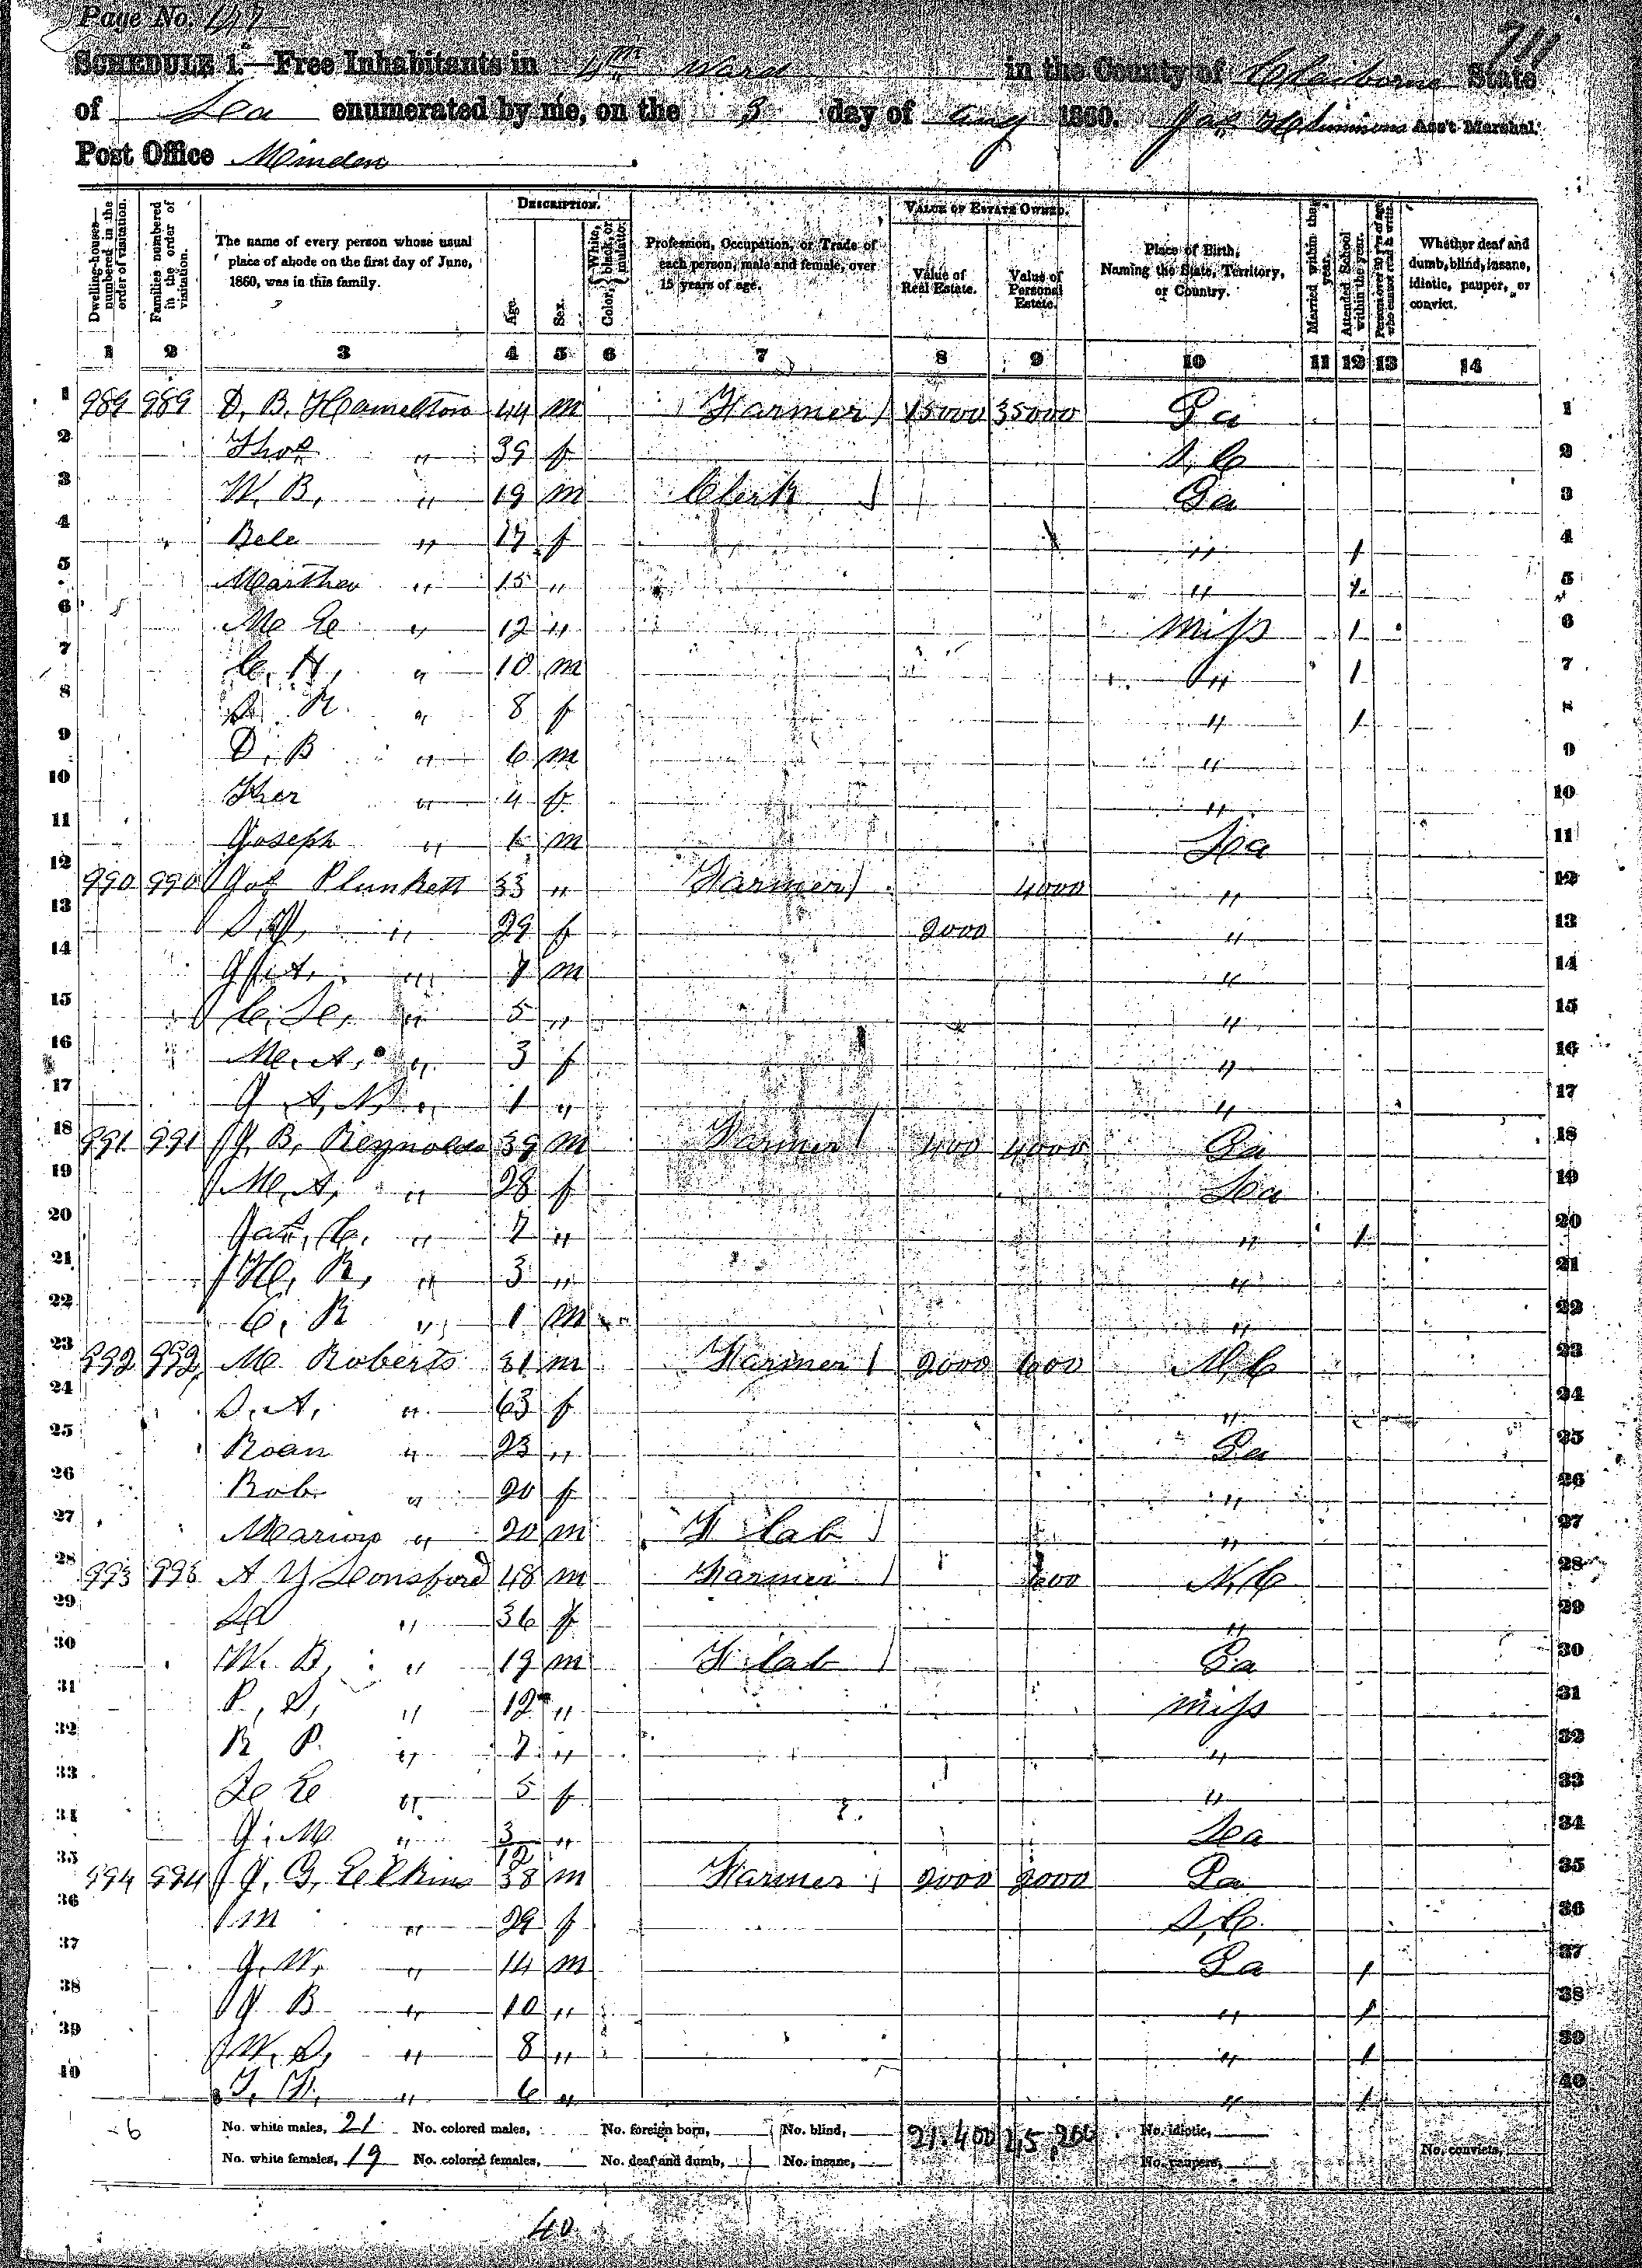 Page No. 147
SCHEDULE 1.—Free Inhabitants in 4th Ward in the County of Claiborne State
of Loa enumerated by me, on the 3 day of Aug 1860. Jas Simmons Ass't Marshal.
Post Office Minden
Dwelling-houses—numbered in the order of visitation.
Families numbered in the order of visitation.
The name of every person whose usual place of abode on the first day of June, 1860, was in this family.
DESCRIPTION.
Age.
Sex.
Color, White, black, or mulatto.
Profession, Occupation, or Trade of each person, male and female, over 15 years of age.
VALUE OF ESTATE OWNED.
Value of Real Estate.
Value of Personal Estate.
Place of Birth, Naming the State, Territory, or Country.
Married within the year.
Attended School within the year.
Persons over 20 y'rs of age who cannot read & write.
Whether deaf and dumb, blind, insane, idiotic, pauper, or convict.
1 2 3 4 5 6 7 8 9 10 11 12 13 14
1 989 989 D. B. Hamelton 44 m Farmer 15000 35000 Ga 1
2 " 39 f S. C 2
3 W. B. " 19 m Clerk Ga 3
4 Bele " 17 f " / 4
5 Marthea " 15 " " 1 5
6 M E " 12 " Miss 1 6
7 C. H. " 10 m " 1 7
8 S. R. " 8 f " 1 8
9 D. B " 6 m " 9
10 " 4 f " 10
11 Joseph " 1 m Loa 11
12 990 990 Jos Plunkett 33 " Farmer 4000 " 12
13 " 29 f 2000 " 13
14 " 7 m " 14
15 " 5 " " 15
16 M. A. " 3 f " 16
17 J A. N. " 1 " " 17
18 991 991 J. B. Reynolds 39 m Farmer 400 4000 Ga 18
19 M. A. " 28 f Loa 19
20 Jas. C. " 7 " " 1 20
21 H. R. " 3 " " 21
22 C. R " 1 m " 22
23 992 992 M Roberts m Farmer 2000 600 N. C 23
24 S. A. " 63 f " 24
25 Roan " 23 " Ga 25
26 Bob " 20 f " 26
27 Marion " 20 m F lab " 27
28 993 993 A Y Lonsford 48 m Farmer 600 N. C 28
29 " 36 f " 29
30 W. B. " 19 m F lab Ga 30
31 P. S. " 12 " Miss 31
32 R P. " 7 " " 32
33 L E " 5 f " 33
34 J. M " 3/12 " Loa 34
35 994 994 J. G. Elkins 38 m Farmer 2000 2000 Ga 35
36 M " 29 f S. C. 36
37 J. W. " 14 m Ga / 37
38 J B " 10 " " / 38
39 W. S. " 8 " " / 39
40 " 6 " " / 40
6 No. white males, 21 No. colored males, No. foreign born, No. blind, 21.400 45,200 No. idiotic,
No. white females, 19 No. colored females, No. deaf and dumb, No. insane, No. paupers, No. convicts,
40